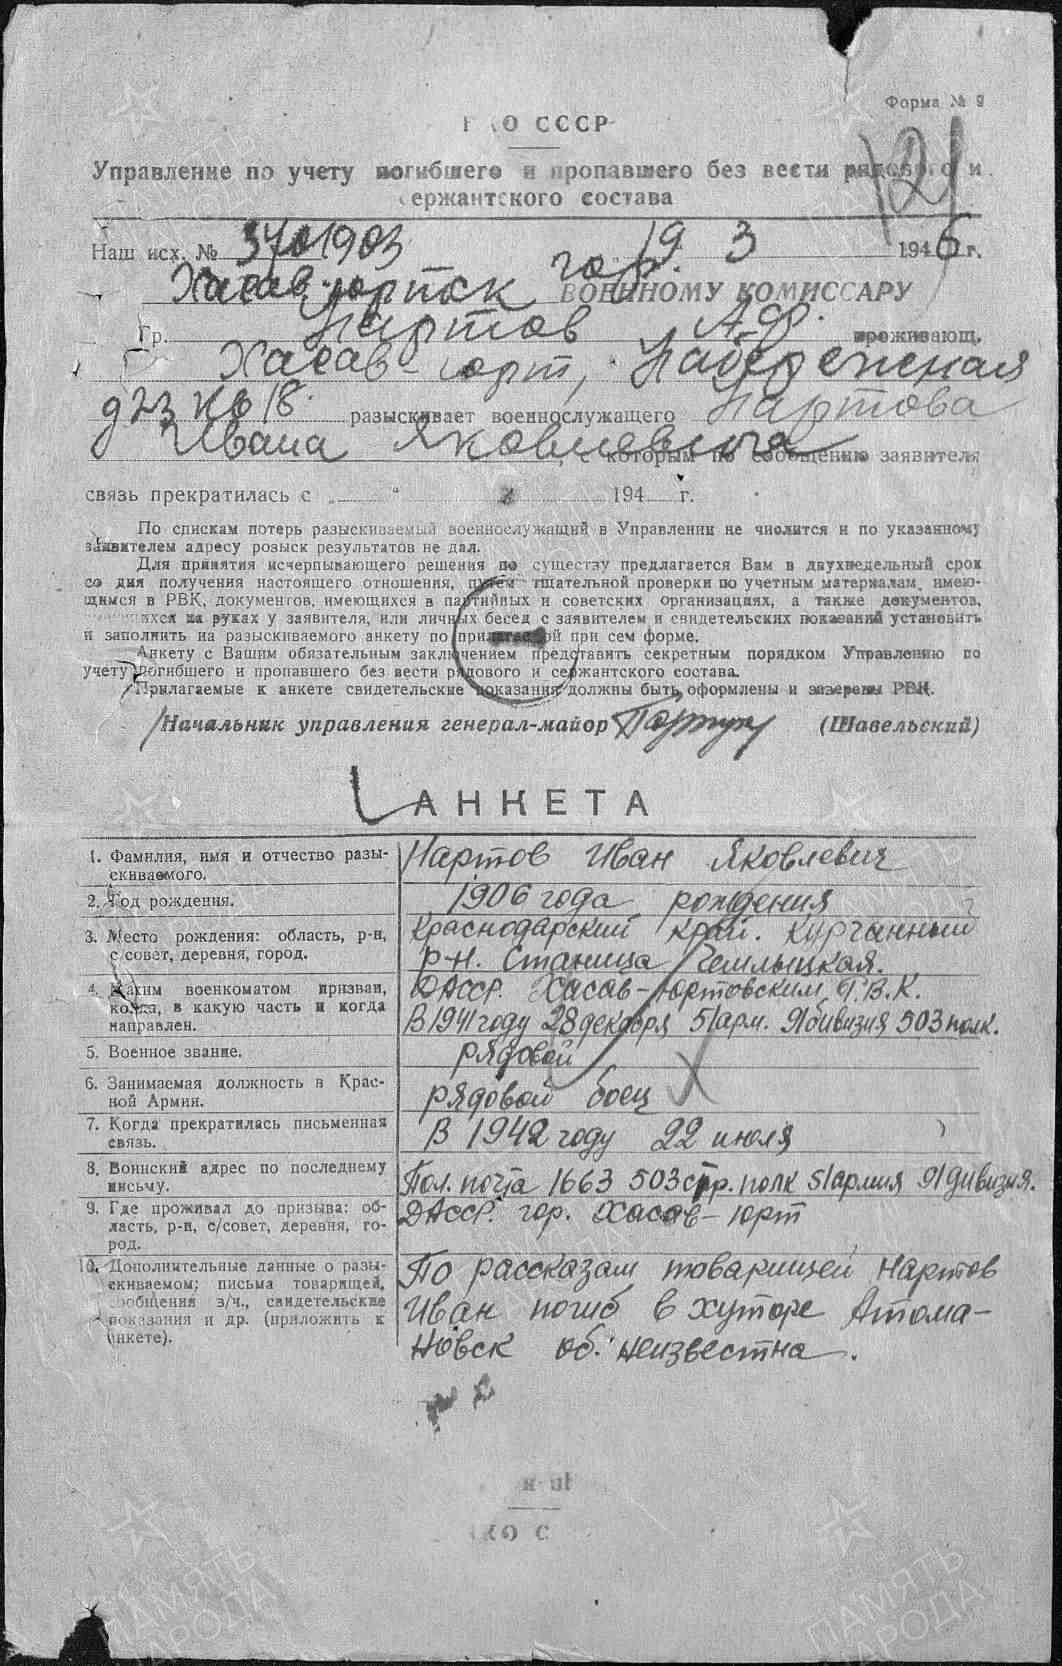 Форма № 9
НКО СССР
Управление по учету погибшего и пропавшего без вести рядового и
сержантского состава
121
Наш исх. № 19 3 1946 г.
Хасав-юртск гор. ВОЕННОМУ КОМИССАРУ
Гр. Нартов А.Ф. проживающ.
Хасав-юрт, Набережная
№ 18. разыскивает военнослужащего Нартова
Ивана Яковлевича с которым по сообщению заявителя
связь прекратилась с „ “ 194 г.
По спискам потерь разыскиваемый военнослужащий в Управлении не числится и по указанному
заявителем адресу розыск результатов не дал.
Для принятия исчерпывающего решения по существу предлагается Вам в двухнедельный срок
со дня получения настоящего отношения, путем тщательной проверки по учетным материалам, имею-
щимся в РВК, документов, имеющихся в партийных и советских организациях, а также документов,
имеющихся на руках у заявителя, или личных бесед с заявителем и свидетельских показаний установить
и заполнить на разыскиваемого анкету по прилагаемой при сем форме.
Анкету с Вашим обязательным заключением представить секретным порядком Управлению по
учету погибшего и пропавшего без вести рядового и сержантского состава.
Прилагаемые к анкете свидетельские показания должны быть оформлены и заверены РВК.
Начальник управления генерал-майор (Шавельский)
АНКЕТА
1. Фамилия, имя и отчество разы-
скиваемого.
Нартов Иван Яковлевич
2. Год рождения.
1906 года рождения
3. Место рождения: область, р-н,
с/совет, деревня, город.
Краснодарский край. Курчанный
р-н. станица Чемлыцкая.
4. Каким военкоматом призван,
когда, в какую часть и когда
направлен.
ДАССР. Хасав-Юртовским Р.В.К.
В 1941 году 28 декабря 51 арм. 91 дивизия 503 полк.
5. Военное звание.
рядовой
6. Занимаемая должность в Крас-
ной Армии.
рядовой боец
7. Когда прекратилась письменная
связь.
В 1942 году 22 июля
8. Воинский адрес по последнему
письму.
Пол. почта 1663 503 стр. полк 51 армия 91 дивизия.
9. Где проживал до призыва: об-
ласть, р-н, с/совет, деревня, го-
род.
ДАССР. гор. Хасав-Юрт
10. Дополнительные данные о разы-
скиваемом; письма товарищей,
сообщения з/ч., свидетельские
показания и др. (приложить к
анкете).
По рассказам товарищей Нартов
Иван погиб в хуторе Атома-
новск об. неизвестна.